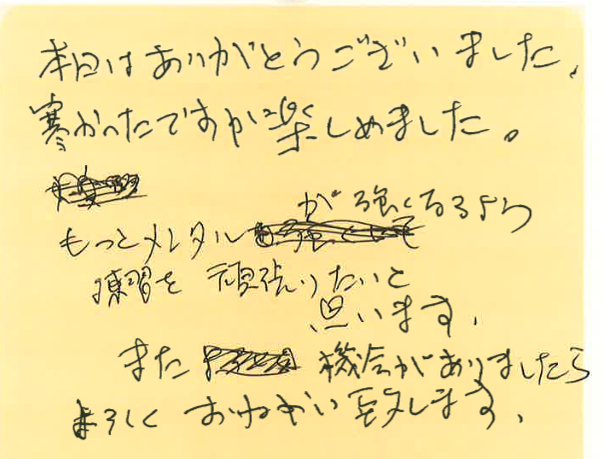 本日はありがとうございました。
寒かったですが楽しめました。
もっとメンタルが強くなるよう
練習を頑張りたいと
思います。
また機会がありましたら
よろしくおねがい致します。